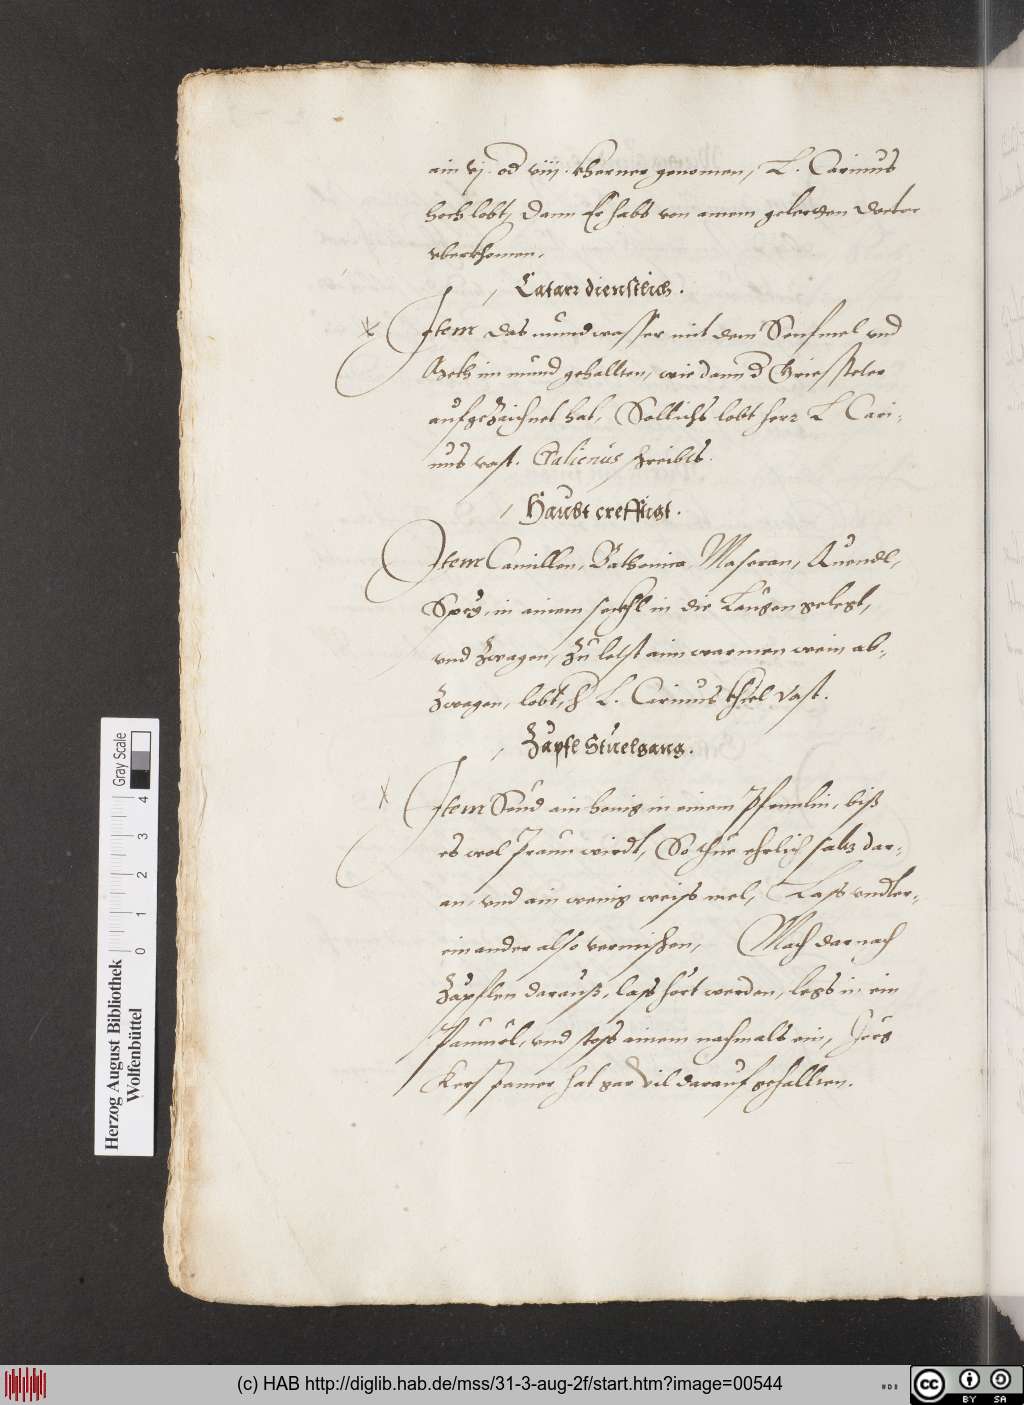 ain vj. od viij. kherner genomen, L. Carinus
hoch lobt, dann Er habs von ainem gelerten doctor
vberkhomen.
Catarr dienstlich.
Item das mundwasser mit dem Senfmel vnd
Meth im mund gehallten, wie dann d Griessteter
aufgezaichnet hat, Sollichs lobt herr L Cari-
nus vast. Galienus schreibts.
Haubt crefftigt.
Item Camillen, Bathonica, Maseran, Quendl,
Speyg, in ainem seckhl in die Laugen gelegt,
vnd zwagen, zu letst ain warmen wein ab-
zwagen, lobt h L. Carinus vast.
Zäpfl Stuelgang.
Item Seud ain honig in einem Pfennlin, biß
es wol Praun wirdt, So thue ehrlich saltz dar-
an, vnd ain wenig weiss mel, Lass vndter-
einander also vermischen, Mach darnach
Zäpflen darauß, lass hört werden, legs in ein
Pämuöl, vnd stoss ainem nachmals ein, Jörg
Kerspamer hat gar vil darauf gehallten.
Herzog August Bibliothek
Wolfenbüttel
Gray Scale
0 1 2 3 4
(c) HAB http://diglib.hab.de/mss/31-3-aug-2f/start.htm?image=00544
cc BY SA